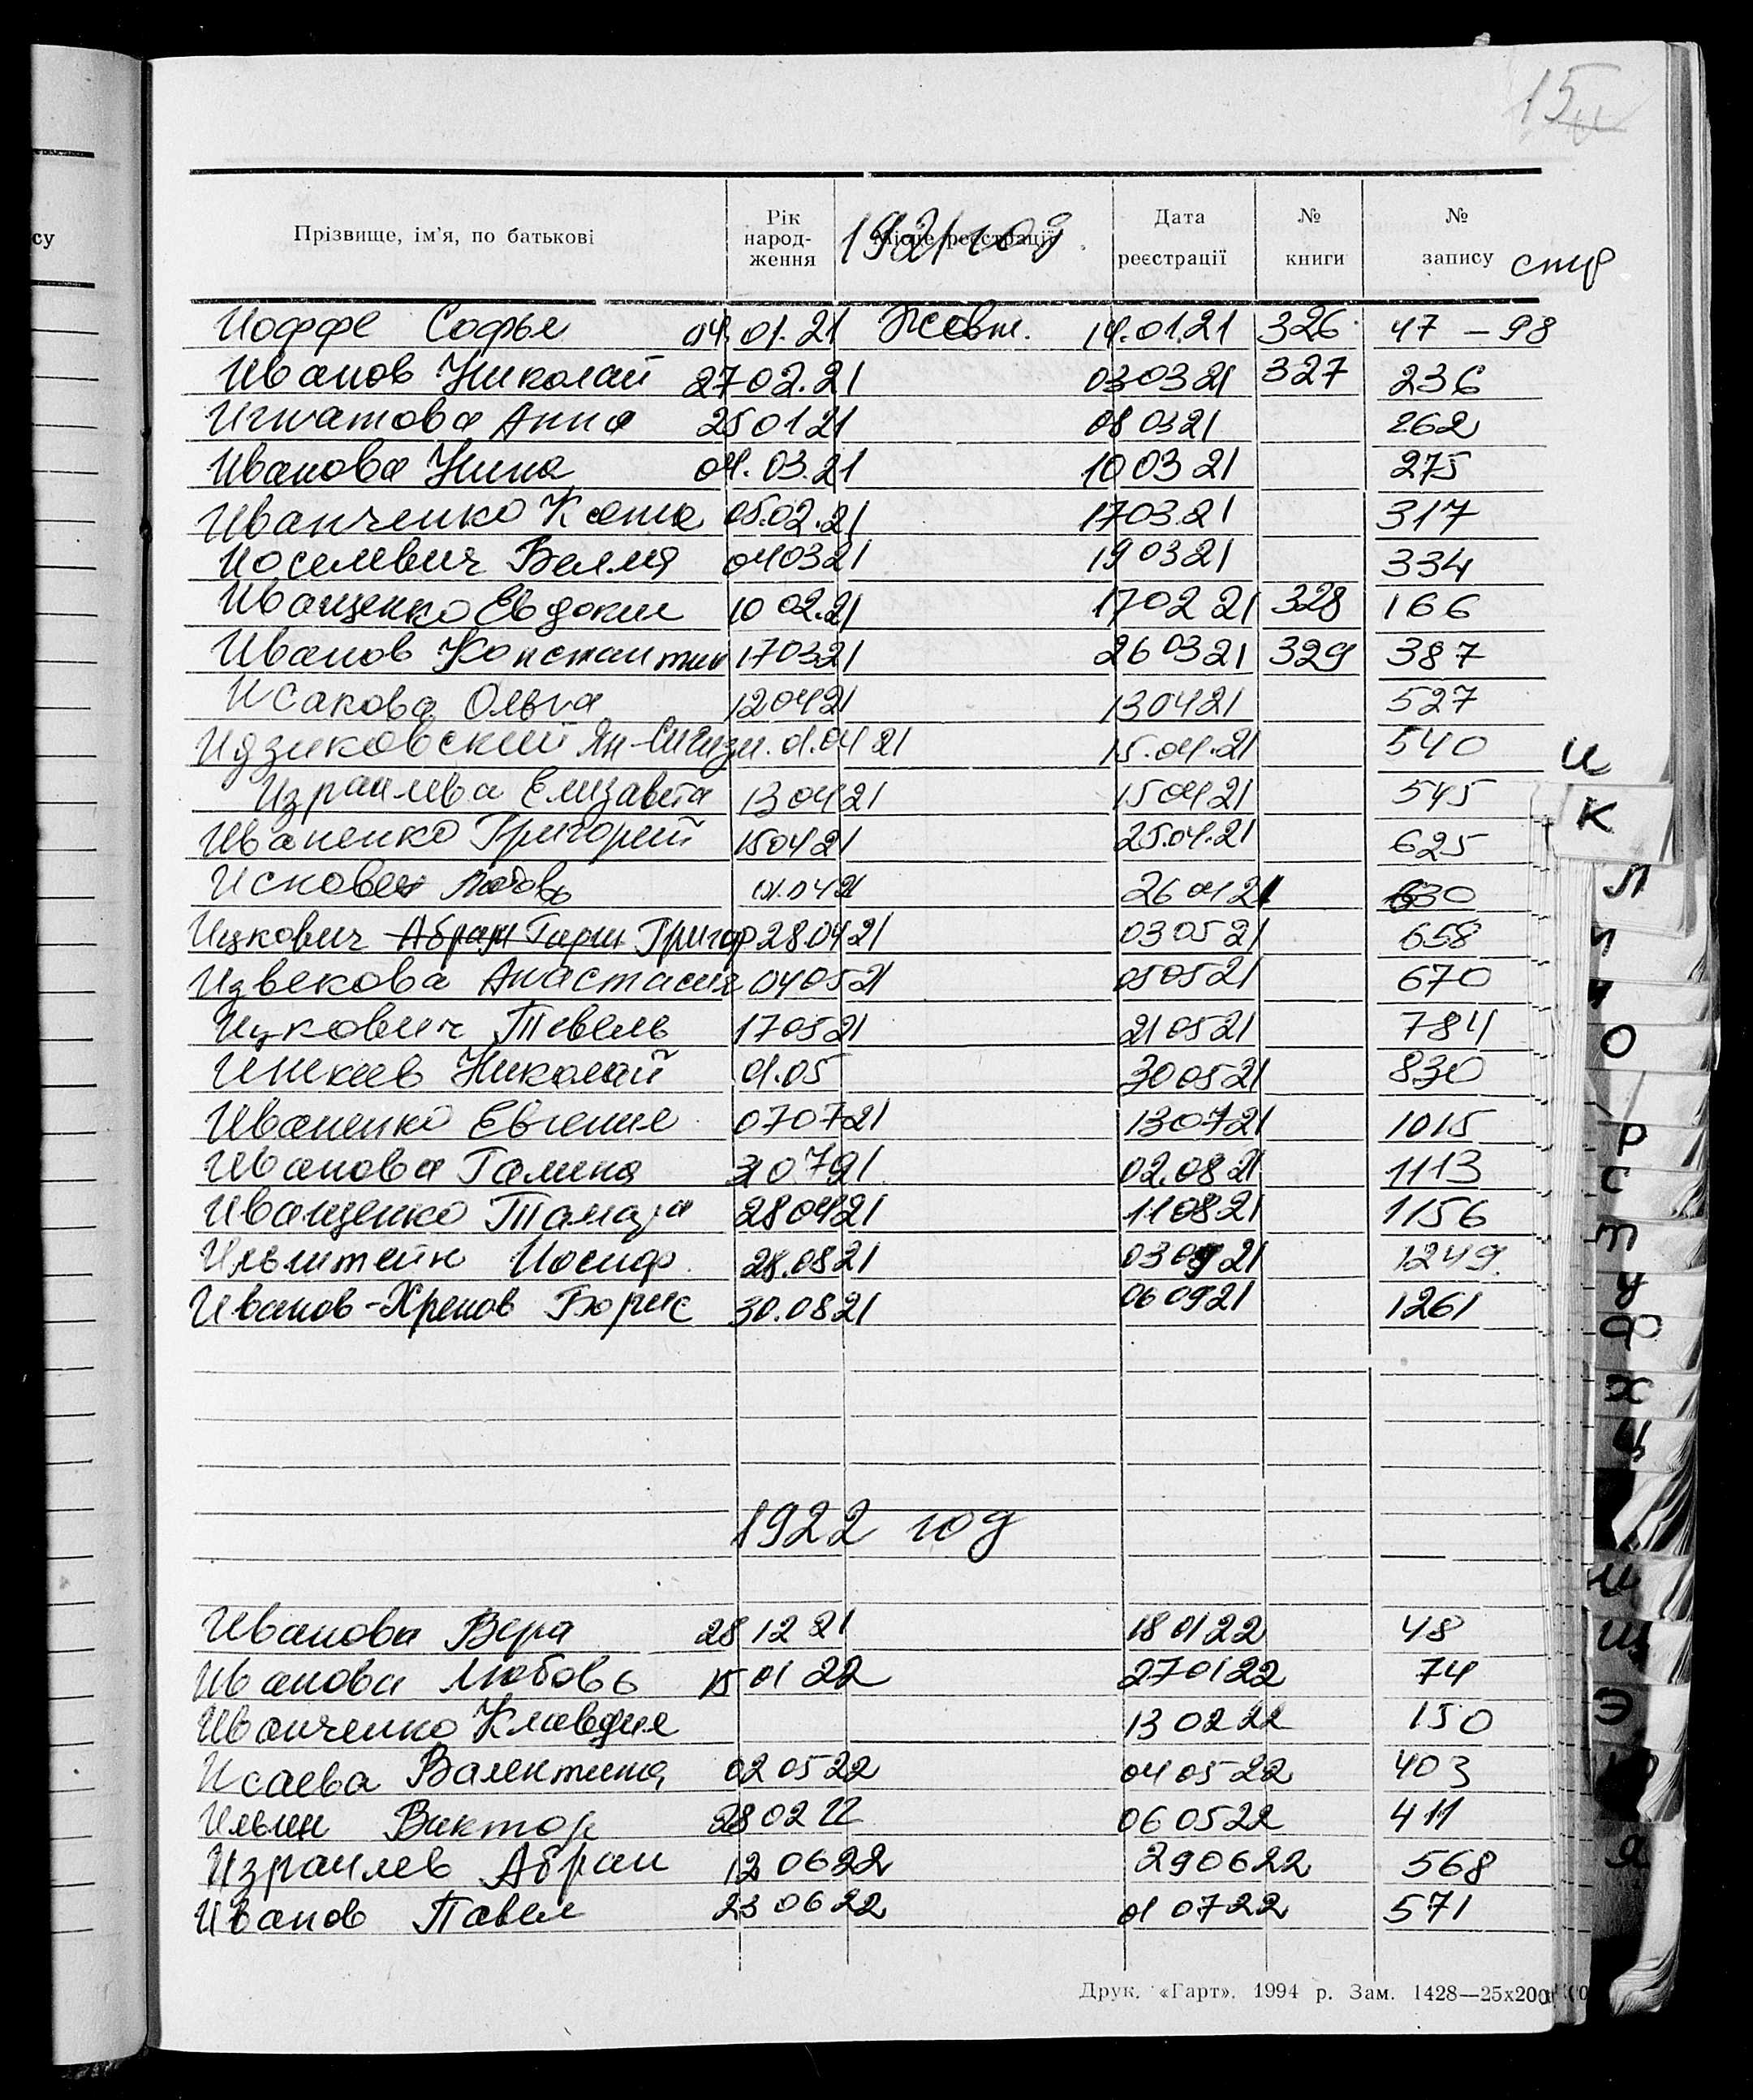 15
Прізвище, ім'я, по батькові Рік народ- ження Місце реєстрації 1921 год Дата реєстрації № книги № запису стр
Иоффе Софья 04.01.21 Жовт. 14.01.21 326 47 - 98
Иванов Николай 27 02.21 03 03 21 327 236
Игнатова Анна 25 01 21 08 03 21 262
Иванова Нина 04.03.21 10 03 21 275
Иванченко Ксения 05.02.21 17 03.21 317
Иоселевич Велля 04 03 21 19 03 21 334
Иващенко Евдокия 10 02.21 17 02 21 328 166
Иванов Константин 17 03 21 26 03 21 329 387
Исакова Ольга 12 04 21 13 04 21 527
Идзиковский Ян-Сигизм. 01.04 21 15.04.21 540
Израилева Елизавета 13 04 21 15 04 21 545
Иваненко Григорий 15 04 21 25.04.21 625
Любовь 01.04 21 26 04 21 630
Ицкович Абрам Гирш Григор 28 04 21 03 05 21 658
Извекова Анастасия 04 05 21 05 05 21 670
Ицкович Тевель 17 05 21 21 05 21 784
Николай 01.05 30 05 21 830
Иваненко Евгения 07 07 21 13 07 21 1015
Иванова Галина 07 21 02.08 21 1113
Иващенко Тамара 28 04 21 11 08 21 1156
Ильштейн Иосиф 28.08 21 03 09 21 1249
Иванов-Хренов Борис 30.08 21 06 09 21 1261
1922 год
Иванова Вера 28 12 21 18 01 22 48
Иванова Любовь 15 01 22 27 01 22 74
Иванченко Клавдия 13 02 22 150
Исаева Валентина 02 05 22 04 05 22 403
Ильин Виктор 28 02 22 06 05 22 411
Израилев Абрам 12 06 22 29 06 22 568
Иванов Павел 23 06 22 01 07 22 571
Друк. «Гарт». 1994 р. Зам. 1428—25х200
су
И
К
Л
О
Р
С
Т
У
Ф
Х
Ц
Ш
Э
Я